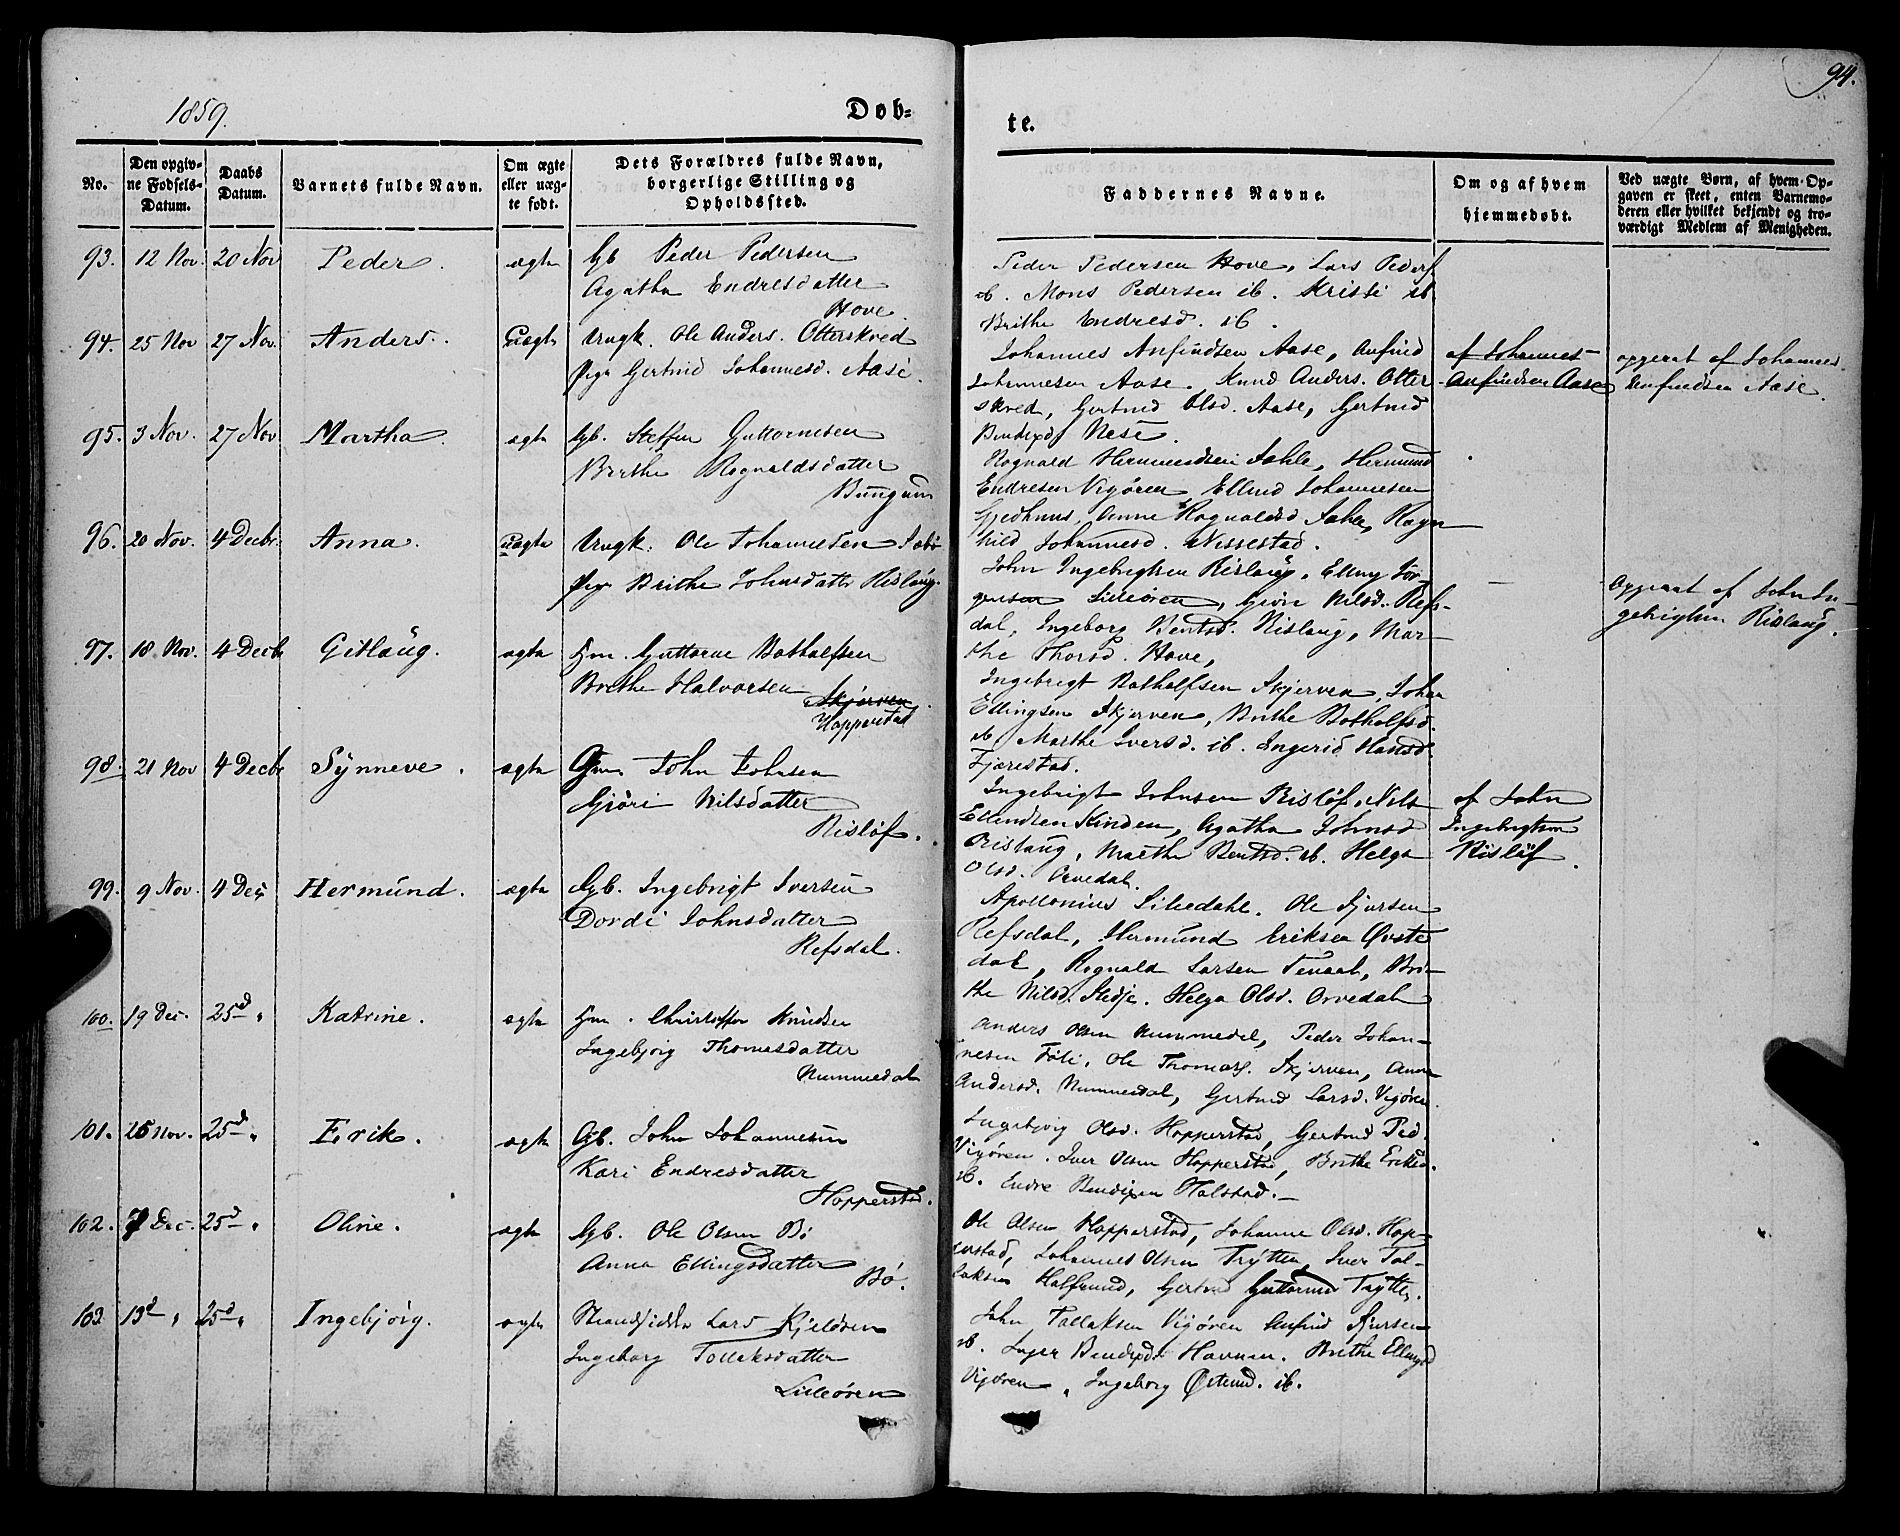 1859.
Døb-
te.
94.
No.
Den opgiv-
ne Fødsels-
Datum.
Daabs
Datum.
Barnets fulde Navn.
Om ægte
eller uæg-
te født.
Dets Forældres fulde Navn,
borgerlige Stilling og
Opholdssted.
Faddernes Navne.
Om og af hvem
hjemmedøbt.
Ved uægte Børn, af hvem Op-
gaven er skeet, enten Barnemo-
deren eller hvilket bekjendt og tro-
værdigt Medlem af Menigheden.
93. 12 Nov. 20 Nov Peder. ægte Gb Peder Pedersen
Agatha Endresdatter
Hove.
Peder Pedersen Hove, Lars Peders.
ib. Mons Pedersen ib. Kristi ib
Brithe Endresd. ib.
94. 25 Nov 27 Nov. Anders. uægte Ungk. Ole Anders. Otterskred
Pige Gertrud Johannesd. Aase.
Johannes Anfindsen Aase, Anfind
Johannesen Aase, Knud Anders. Otter
skred, Gertrud Olsd. Aase, Gertrud
Bendixd. Nese.
af Johannes
Anfindsen Aase
opgivet af Johannes
Anfindsen Aase.
95. 3 Nov. 27 Nov Martha. ægte Gb. Steffen Guttormsen
Brithe Rognaldsdatter
Rognald Hermundsen Hermund
Endresen Vigøren, Johannesen
Anne Rognaldsd Ragn
hild Johannesd. Nissestad.
96. 20 Nov. 4 Decbr. Anna. uægte Ungk. Ole Johannesen
Pige Brithe Johnsdatter Rislaug.
John Ingebrigtsen Rislaug, Jør-
gensen Lilleøren, Gjøri Nilsd. Refs-
dal, Ingeborg Bentsd. Rislaug, Mar-
the Thorsd. Hove,
Opgivet af John In-
gebrigtsen Rislaug.
97. 18 Nov. 4 Decbr. Gitlaug. ægte Hm. Guttorm Botholfsen
Brithe Halvorsen Skjerven
Hopperstad
Ingebrigt Botholfsen Skjerven, Johan
Ellingsen Skjerven, Brithe Botholfsd.
ib Marthe Iversd. ib. Ingerid Hansd.
Fjærestad.
98. 21 Nov 4 Decbr Synneve. ægte Gm. John Johnsen
Gjøri Nilsdatter
Risløf.
Ingebrigt Johnsen Risløf, Nils
Ellendsen Kinden, Agatha Johnsd
Rislaug, Marthe Bentsd. ib. Helga
Olsd. Orvedal.
af John
Ingebrigtsen
Risløf.
99. 9 Nov. 4 Dec Hermund. ægte Gb. Ingebrigt Iversen
Dordi Johnsdatter
Refsdal.
Apollonius Ole Sjursen
Refsdal, Hermund Eriksen Øvste
dal, Rognald Larsen Bri-
the Nilsd. Helga Olsd. Orvedal
100. 19 Dec. 25d " Katrine. ægte Hm. Christoffer Knudsen
Ingebjørg Thomasdatter
Nummedal
Anders Olsen Nummedal, Peder Johan-
nesen Føli, Ole Thomass. Skjerven, Anna
Andersd. Nummedal, Gertrud Larsd. Vigøren.
101. 26 Nov. 25d " Erik. ægte Gb. John Johannesen
Kari Endresdatter
Hopperstad.
Ingebjørg Olsd. Hopperstad, Gertrud Ped.
Vigøren. Iver Olsen Hopperstad, Brithe Eriksd.
ib. Endre Bendixen Halstad.
102. 7 Dec. 25d " Oline. ægte Gb. Ole Olsen Bø
Anna Ellingsdatter
Bø.
Ole Olsen Hopperstad, Johanne Olsd. Hop-
perstad, Johannes Olsen Trytten, Iver Tol-
laksen Gertrud Guttormsd Trytten.
103 13d " 25d " Ingebjørg. ægte Strandsidder Lars Kjeldsen
Ingeborg Tollaksdatter
Lilleøren
John Tollaksen Vigøren Anfind Sjursen
ib. Inger Bendixdr Havnen. Brithe Ellingsd
Vigøren, Ingeborg ib.